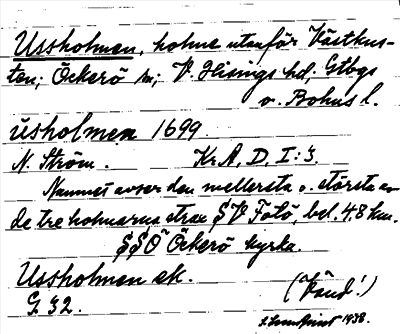 Ussholmen, holme utanför Västkus-
ten; Öckerö sn; V. Hisings hd; Gtbgs
o. Bohus l.
üsholmen 1699.
N. Ström. Kr. A, D, I:3.
Namnet avser den mellersta o. största av
de tre holmarna strax S V Fotö, bel. 4,8 km.
SSÖ Öckerö kyrka.
Ussholmen ek.
G. 32. (Vänd!)
1938.